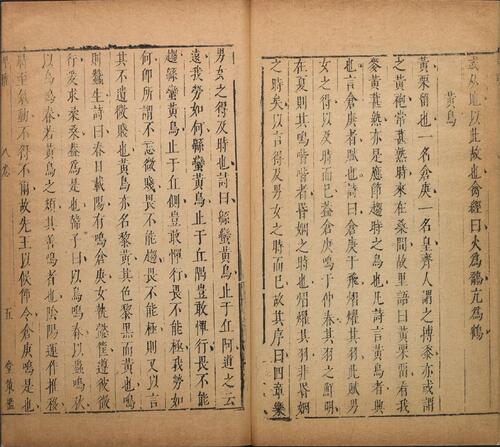 也以此故也禽經曰火為鸛亢為鶴
黃鳥
黃栗留也一名倉庚一名皇齊人謂之搏黍亦或謂
之黃袍常葚熟時來在桑間故里語曰黃栗留看我
麥黃葚熟亦是應節趨時之鳥也凡詩言黃鳥者興
也言倉庚者賦也詩曰倉庚于飛熠燿其羽此賦男
女之得以及時而已蓋倉庚鳴于仲春其羽之鮮明
在夏則其鳴嘗嘗者昏姻之時也熠燿其羽非昏姻
之時矣以言得及男女之時而已故其序曰四章樂
男女之得及時也詩曰緜蠻黃鳥止于丘阿道之云
遠我勞如何緜蠻黃鳥止于丘隅豈敢憚行畏不能
趨緜蠻黃鳥止于丘側豈敢憚行畏不能極我勞如
何即所謂不忘微賤畏不能趨畏不能極則又以言
其不遺微賤也黃鳥亦名黎黃其色黎黑而黃也鳴
則蠶生詩曰春日載陽有鳴倉庚女執懿筐遵彼微
行爰求柔桑蓋為是也韓子曰以鳥鳴春以蟲鳴秋
以鳥鳴春若黃鳥之類其善鳴者也陰陽運作推移
時至氣動不得不爾故先王以候節令倉庚鳴是也
埤雅 八卷 五 堂策檻